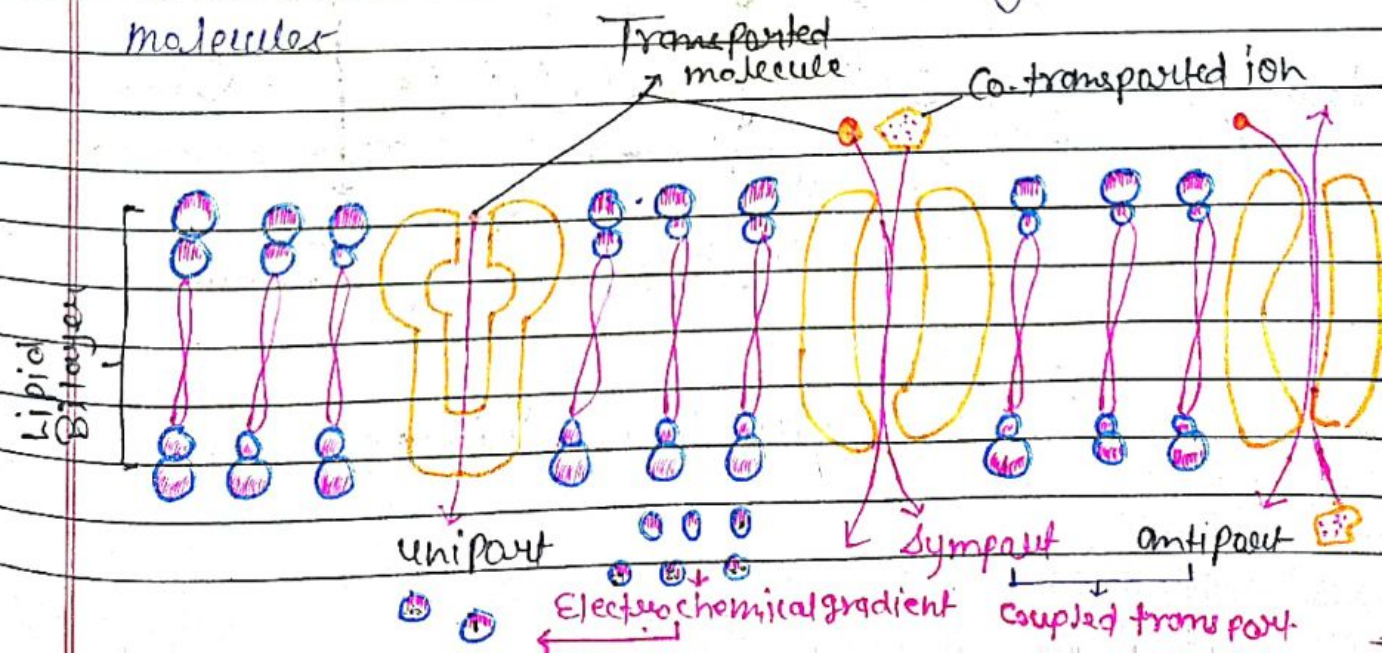 molecules
Transported
molecule
Co-transported ion
Lipid
Bilayer
unipart
sympart
antipart
Electrochemical gradient
Coupled transport